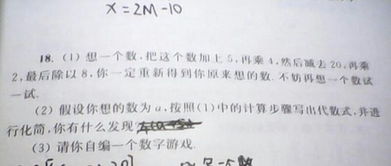 x=2M-10
18. (1) 想一个数,把这个数加上 5,再乘 4,然后减去 20,再乘
2,最后除以 8,你一定重新得到你原来想的数. 不妨再想一个数试
一试.
(2) 假设你想的数为 a,按照(1)中的计算步骤写出代数式,并进
行化简,你有什么发现
(3) 请你自编一个数字游戏.